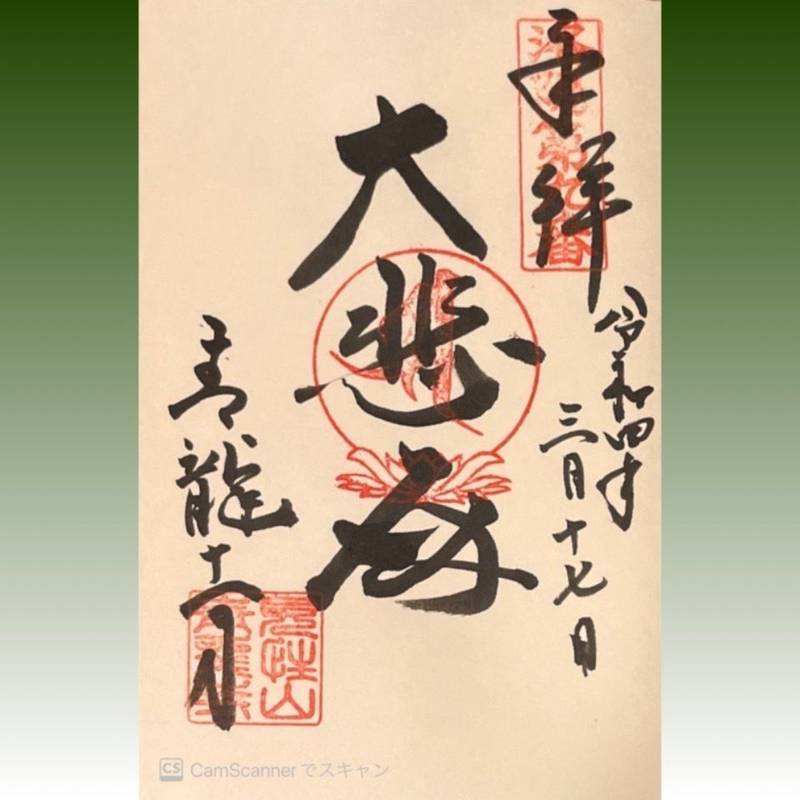 奉拝
令和四年
三月十七日
大悲殿
青龍寺
CS CamScannerでスキャン